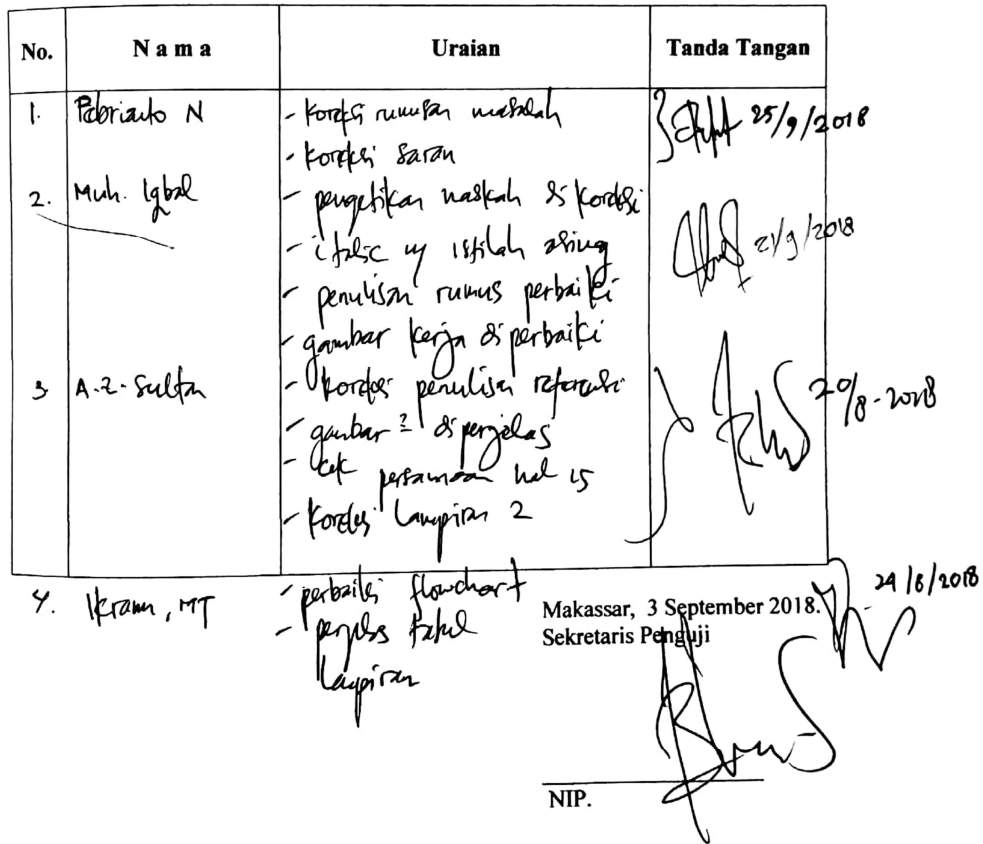 No. N a m a Uraian Tanda Tangan
1. Pebrianto N - koreksi rumusan masalah 25/9/2018
- koreksi saran
2. Muh. Iqbal - pengetikan naskah di koreksi 21/9/2018
- italic u/ istilah asing
- penulisan rumus perbaiki
- gambar kerja diperbaiki
3 A.Z. Sultan - koreksi penulisan referensi 20/8-2018
- gambar2 diperjelas
- cek persamaan hal 15
- koreksi lampiran 2
4. Ikram, MT - perbaiki flowchart
- perjelas tabel
lampiran
Makassar, 3 September 2018. 24/8/2018
Sekretaris Penguji
NIP.